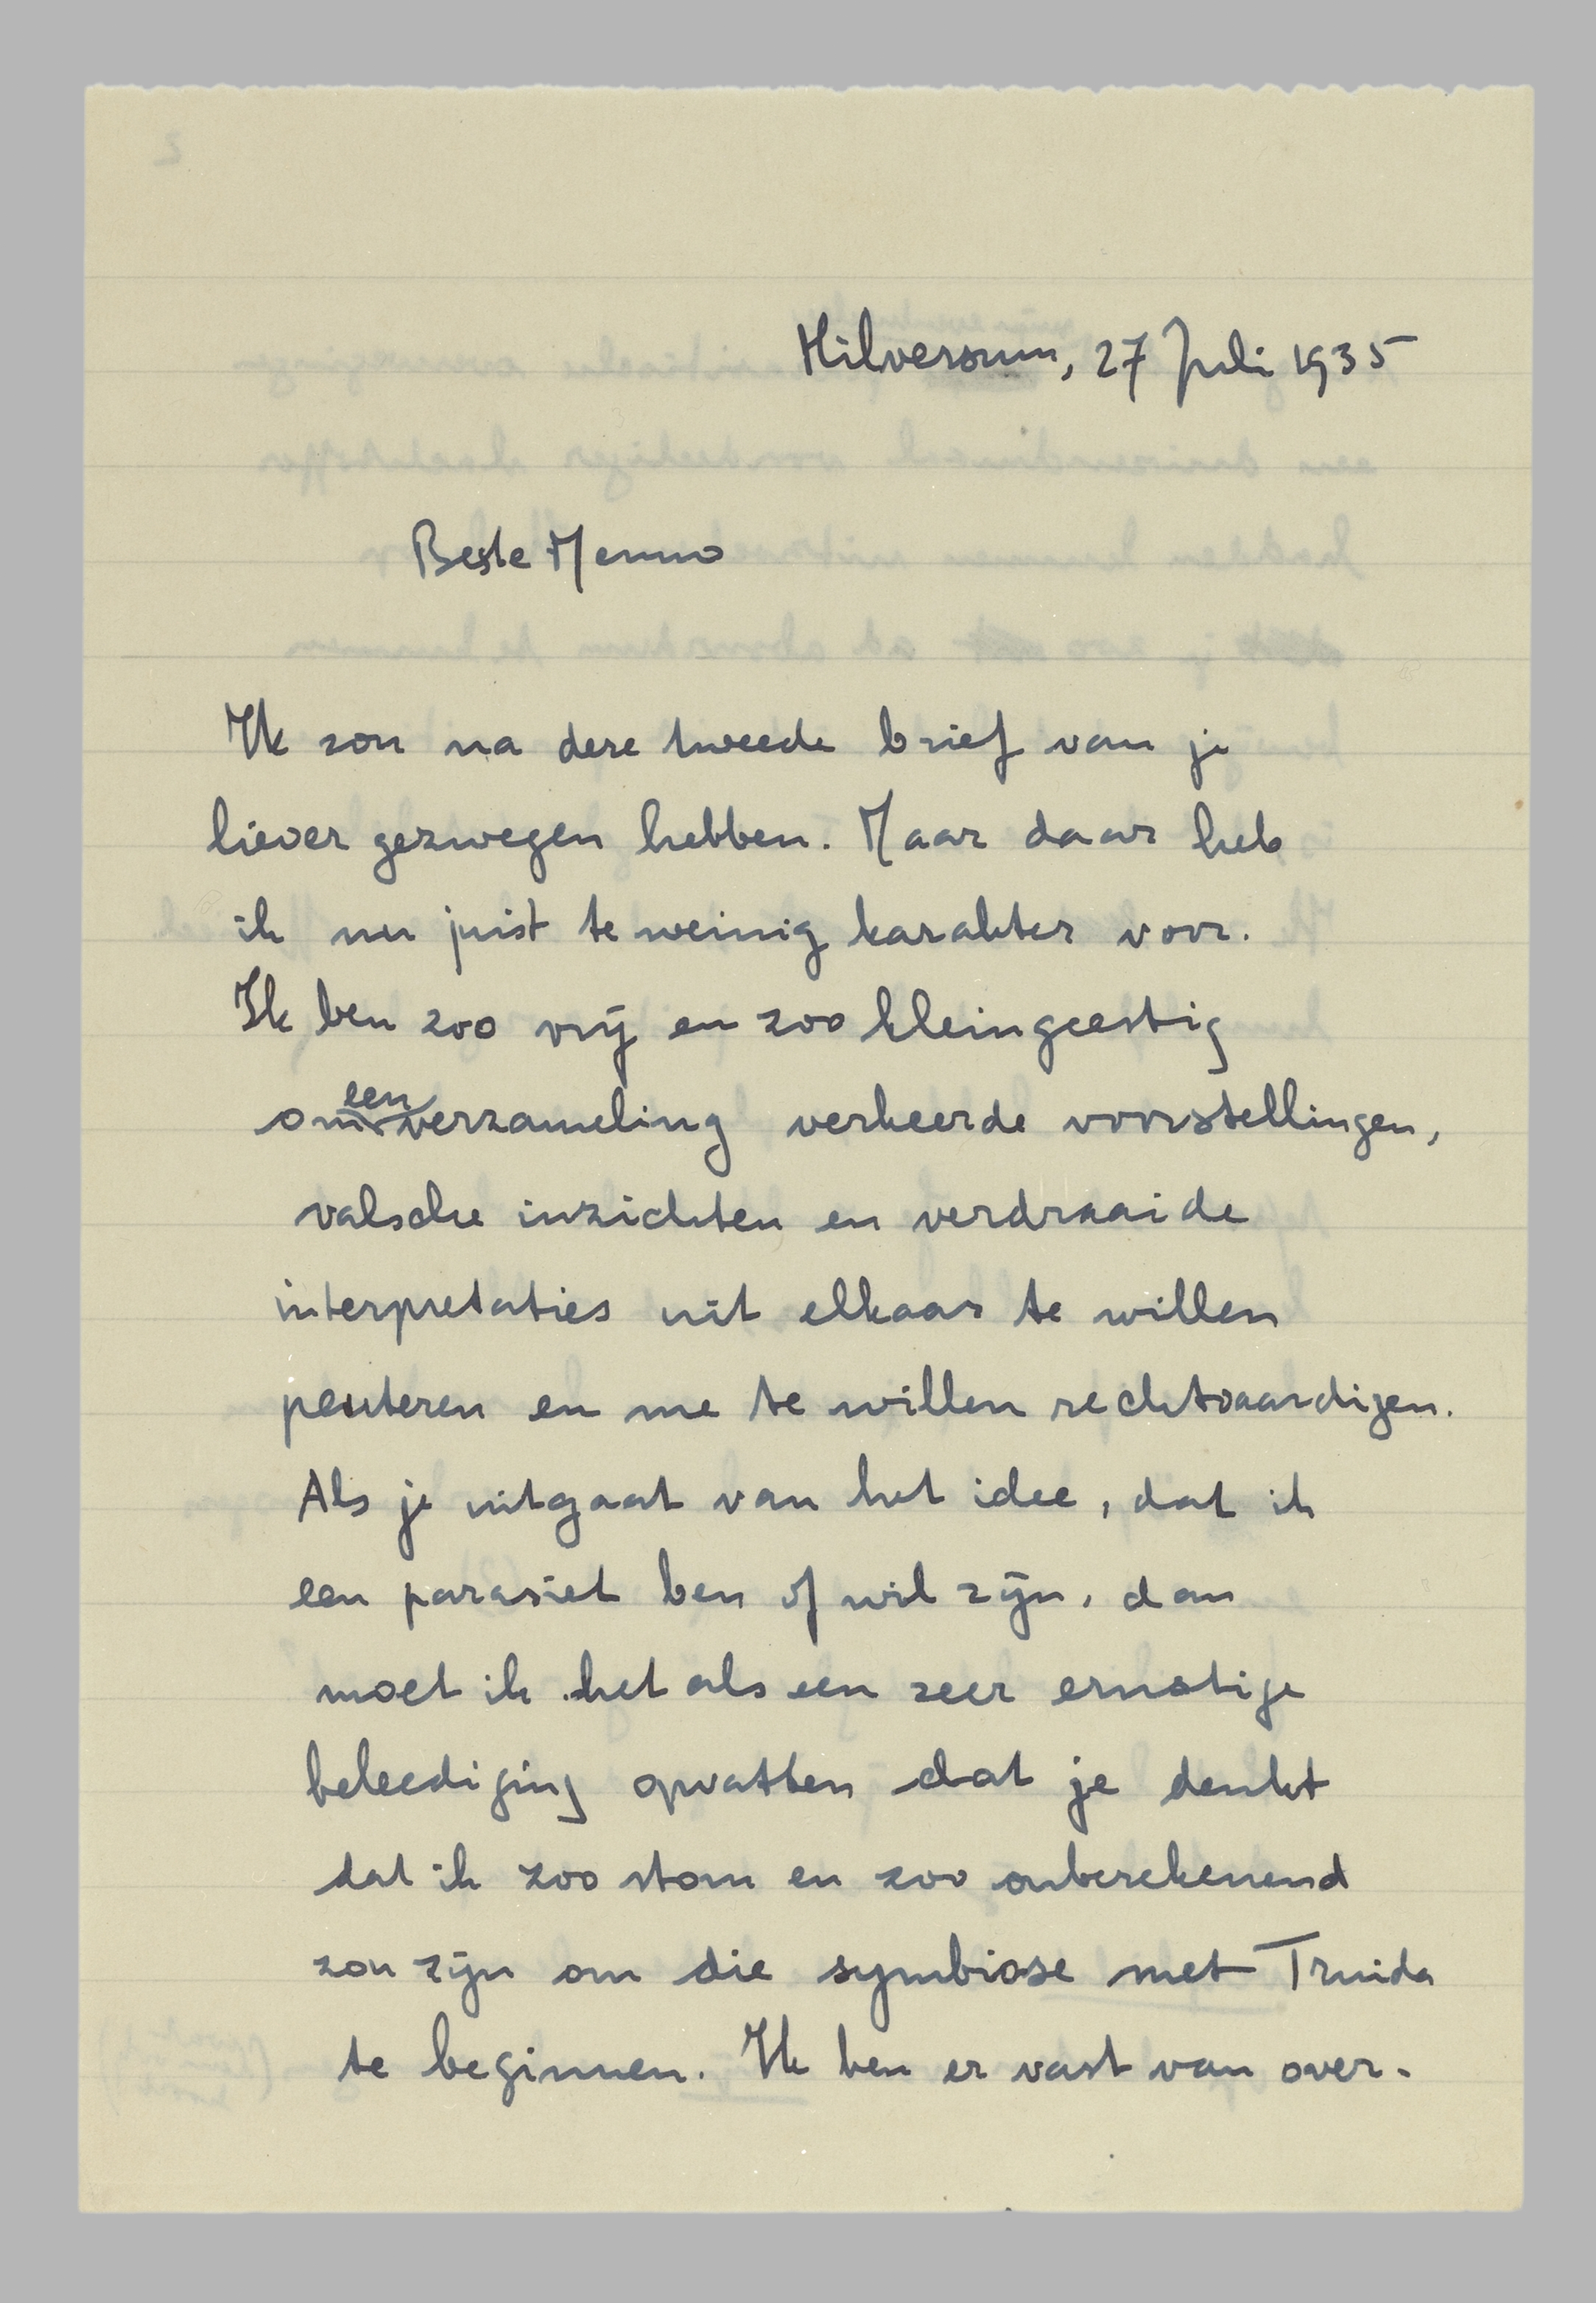 Hilversum, 27 Juli 1935
Beste Menno
Ik zou na deze tweede brief van je
liever gezwegen hebben. Maar daar heb
ik nu juist te weinig karakter voor.
Ik ben zoo vrij en zoo kleingeestig
om een verzameling verkeerde voorstellingen,
valsche inzichten en verdraaide
interpretaties uit elkaar te willen
peuteren en me te willen rechtvaardigen.
Als je uitgaat van het idee, dat ik
een parasiet ben of wil zijn, dan
moet ik het als een zeer ernstige
beleediging opvatten dat je denkt
dat ik zoo stom en zoo onberekenend
zou zijn om die symbiose met Truida
te beginnen. Ik ben er vast van over-